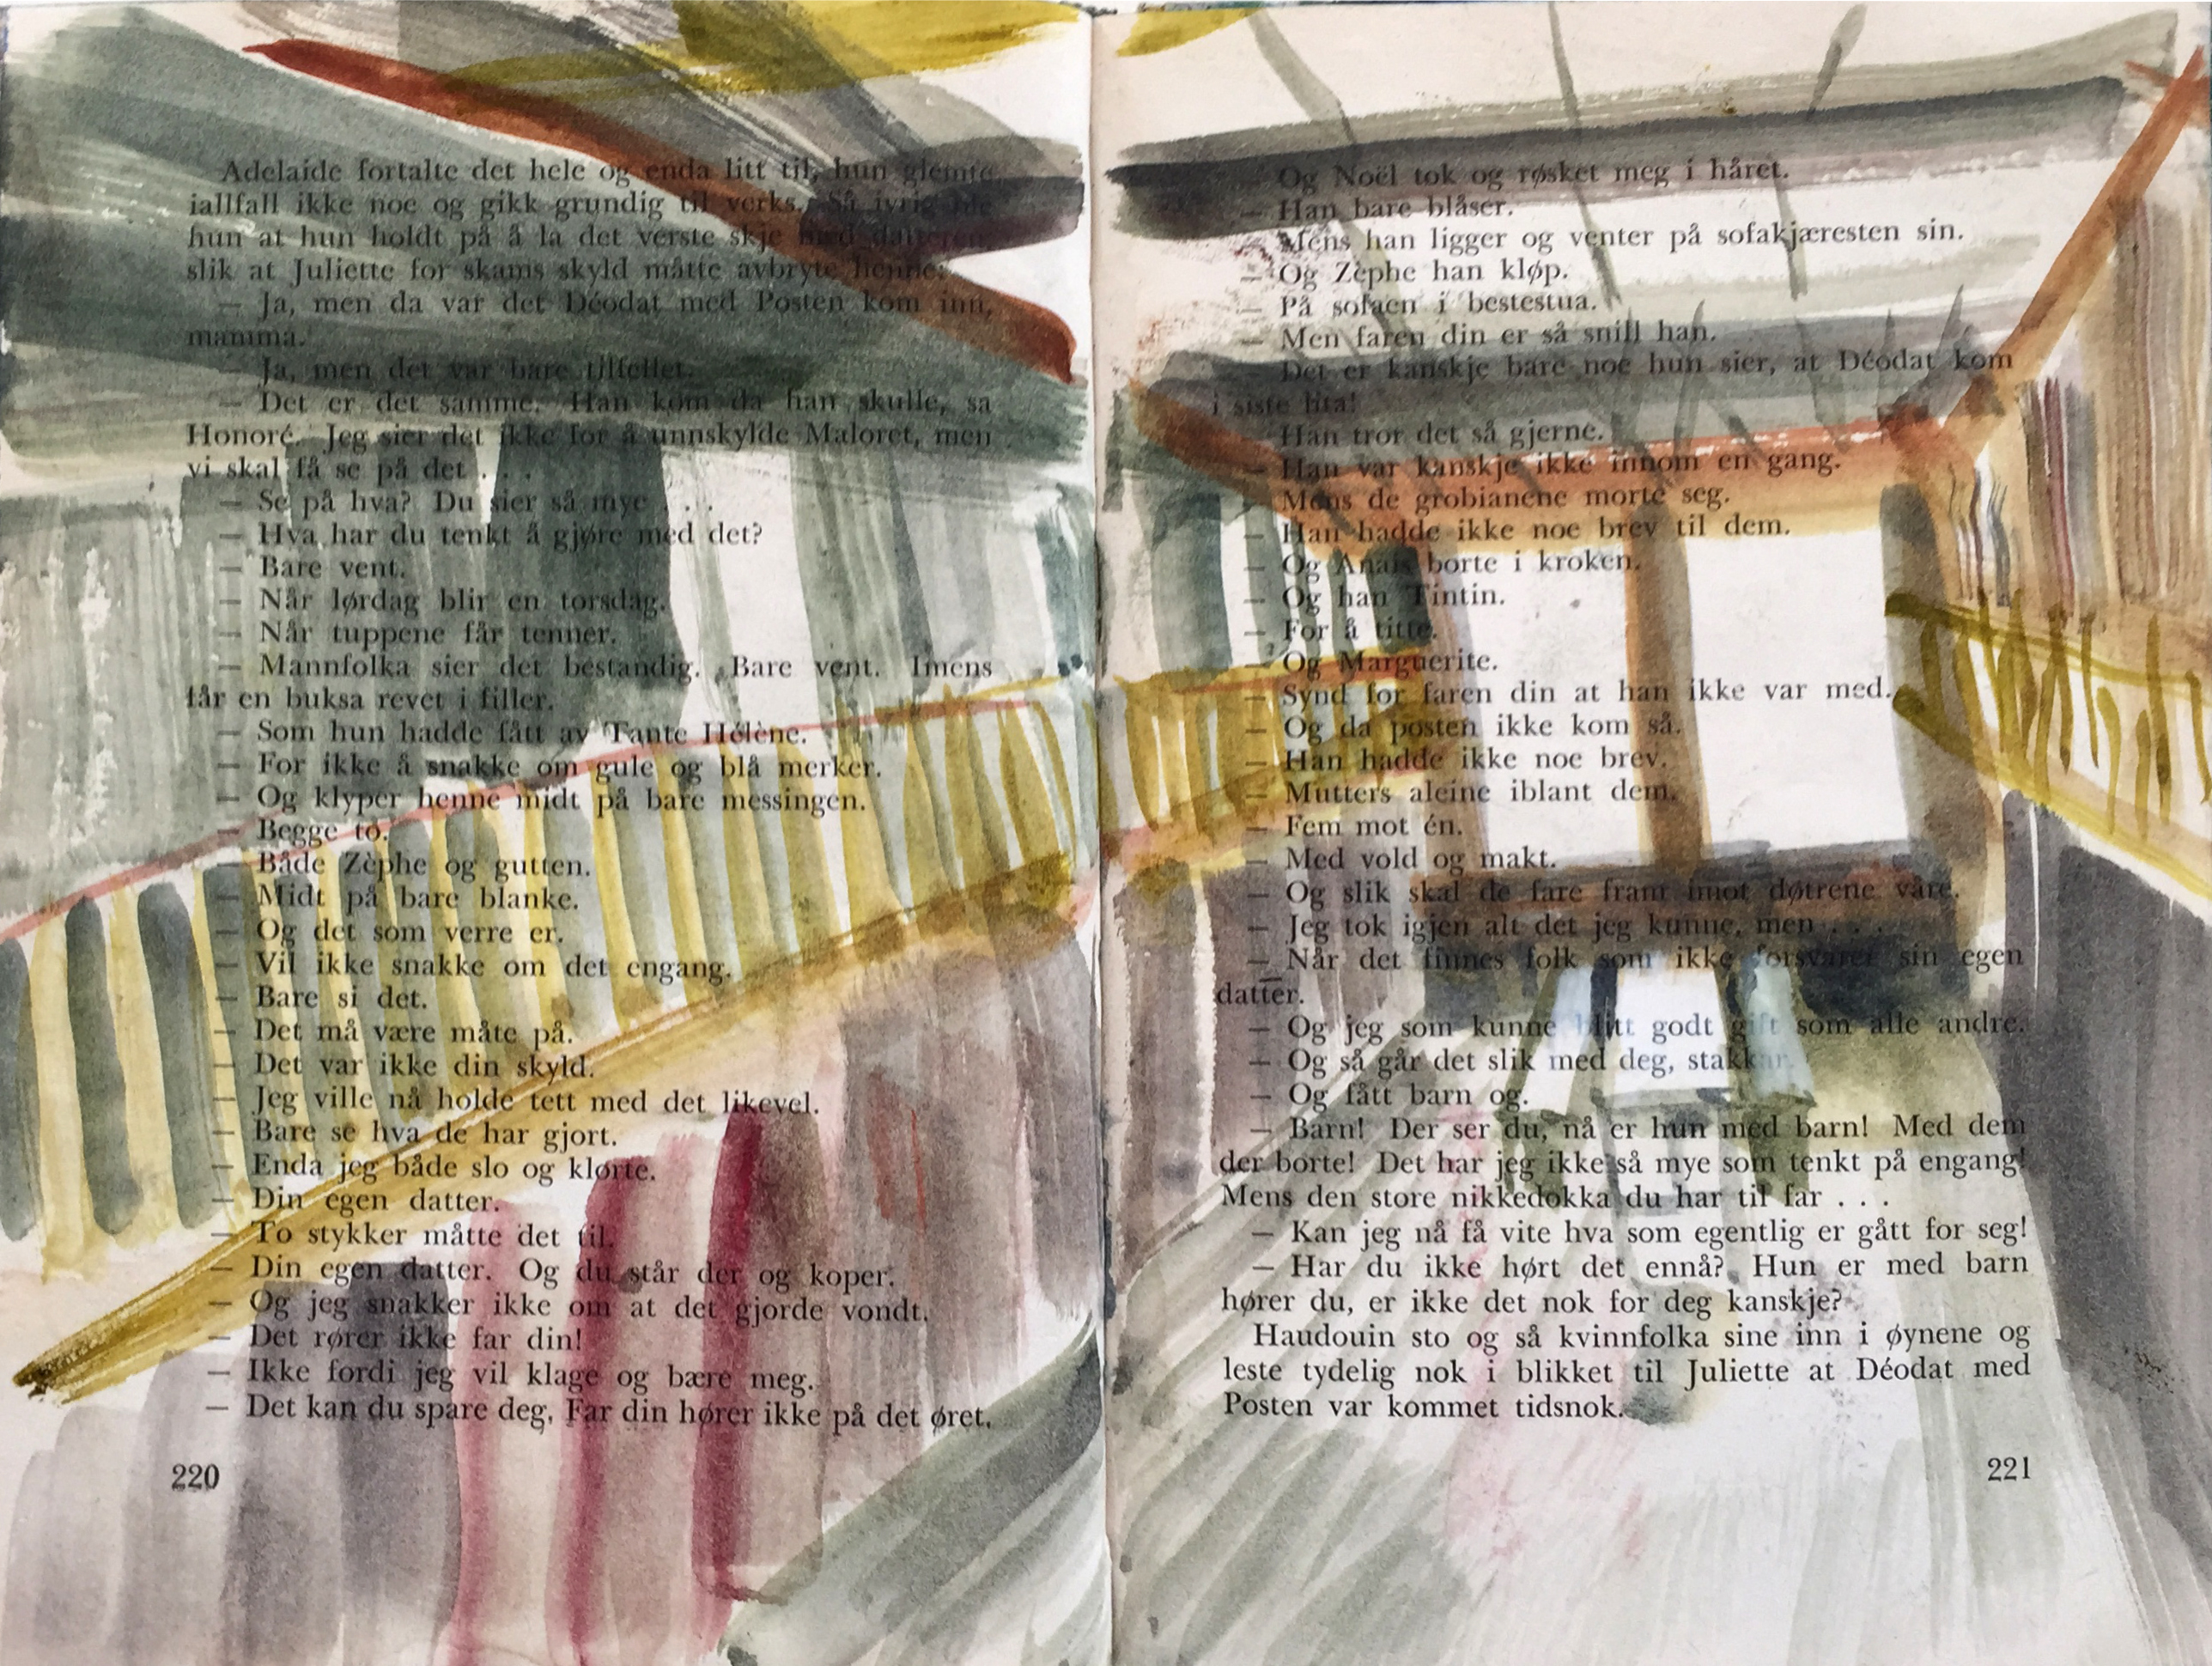 Adelaide fortalte det hele og enda litt til, hun glemte
iallfall ikke noe og gikk grundig til verks. Så ivrig ble
hun at hun holdt på å la det verste skje med datteren,
slik at Juliette for skams skyld måtte avbryte henne:
— Ja, men da var det Déodat med Posten kom inn,
mamma.
— Ja, men det var bare tilfellet.
— Det er det samme. Han kom da han skulle, sa
Honoré. Jeg sier det ikke for å unnskylde Maloret, men
vi skal få se på det . . .
— Se på hva? Du sier så mye . . .
— Hva har du tenkt å gjøre med det?
— Bare vent.
— Når lørdag blir en torsdag.
— Når tuppene får tenner.
— Mannfolka sier det bestandig. Bare vent. Imens
får en buksa revet i filler.
— Som hun hadde fått av Tante Hélène.
— For ikke å snakke om gule og blå merker.
— Og klyper henne midt på bare messingen.
— Begge to.
— Både Zèphe og gutten.
— Midt på bare blanke.
— Og det som verre er.
— Vil ikke snakke om det engang.
— Bare si det.
— Det må være måte på.
— Det var ikke din skyld.
— Jeg ville nå holde tett med det likevel.
— Bare se hva de har gjort.
— Enda jeg både slo og klorte.
— Din egen datter.
— To stykker måtte det til.
— Din egen datter. Og du står der og koper.
— Og jeg snakker ikke om at det gjorde vondt.
— Det rører ikke far din!
— Ikke fordi jeg vil klage og bære meg.
— Det kan du spare deg. Far din hører ikke på det øret.
220
— Og Noël tok og røsket meg i håret.
— Han bare blåser.
— Mens han ligger og venter på sofakjæresten sin.
— Og Zèphe han kløp.
— På sofaen i bestestua.
— Men faren din er så snill han.
— Det er kanskje bare noe hun sier, at Déodat kom
i siste lita!
— Han tror det så gjerne.
— Han var kanskje ikke innom en gang.
— Mens de grobianene morte seg.
— Han hadde ikke noe brev til dem.
— Og Anaïs borte i kroken.
— Og han Tintin.
— For å titte.
— Og Marguerite.
— Synd for faren din at han ikke var med.
— Og da posten ikke kom så.
— Han hadde ikke noe brev.
— Mutters aleine iblant dem.
— Fem mot én.
— Med vold og makt.
— Og slik skal de fare fram imot døtrene våre.
— Jeg tok igjen alt det jeg kunne, men . . .
— Når det finnes folk som ikke forsvarer sin egen
datter.
— Og jeg som kunne blitt godt gift som alle andre.
— Og så går det slik med deg, stakkar.
— Og fått barn og.
— Barn! Der ser du, nå er hun med barn! Med dem
der borte! Det har jeg ikke så mye som tenkt på engang!
Mens den store nikkedokka du har til far . . .
— Kan jeg nå få vite hva som egentlig er gått for seg!
— Har du ikke hørt det ennå? Hun er med barn
hører du, er ikke det nok for deg kanskje?
Haudouin sto og så kvinnfolka sine inn i øynene og
leste tydelig nok i blikket til Juliette at Déodat med
Posten var kommet tidsnok.
221